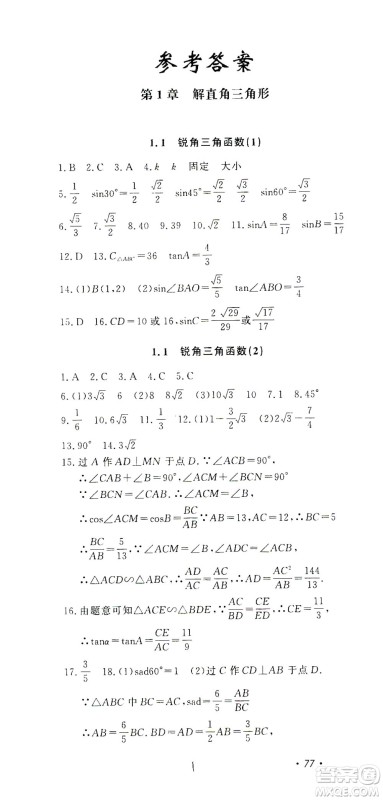 参考答案
第1章 解直角三角形
1.1 锐角三角函数(1)
1.B 2.C 3.A 4.k k 固定 大小
5.1/2 sin30°=1/2 √2/2 sin45°=√2/2 √3/2 sin60°=√3/2
6.√3/3 7.√3/2 8.40 9.39 10.√5/2 11.sinA=8/17 sinB=15/17
12.D 13.C△ABC=36 tanA=4/3
14.(1)B(1,2) (2)sin∠BAO=√5/5 tan∠ABO=3
15.D 16.CD=10或16,sinC=2√29/29或√17/17
1.1 锐角三角函数(2)
1.A 2.C 3.C 4.A 5.B
6.(1)3√3 (2)√3 7.2√3 8.60° 10 7.1 8.75°
9.1/6 10.√3 11.(1)-3√3/4 (2)1/2 12.-7/4
13.90° 14.3√2
15.过A作AD⊥MN于点D.∵∠ACB=90°,
∴∠CAB+∠B=90°,∵∠ACM=90°,
∴∠BCN=∠CAB.∴∠ACM=∠B,
∴cos∠ACM=cosB=BC/AB,
∴BC/AB=5/13.∵∠ACM=∠B,∠ACB=90°,
∴△ADC∽△BCA,∴AD/BC=AC/AB=144/13.
16.由题意可知△ACE∽△BDE,∴AC/BD=CE/DE,
∴tanα=tanA=CE/AC=11/9
17.3/5 18.(1)sad60°=1 (2)过C作CD⊥AB于点D.
∵△ABC中BC=AC,sad=AB/BC=6/5
∴AB=6/5BC,∵△ABC中,BC=AC,
77